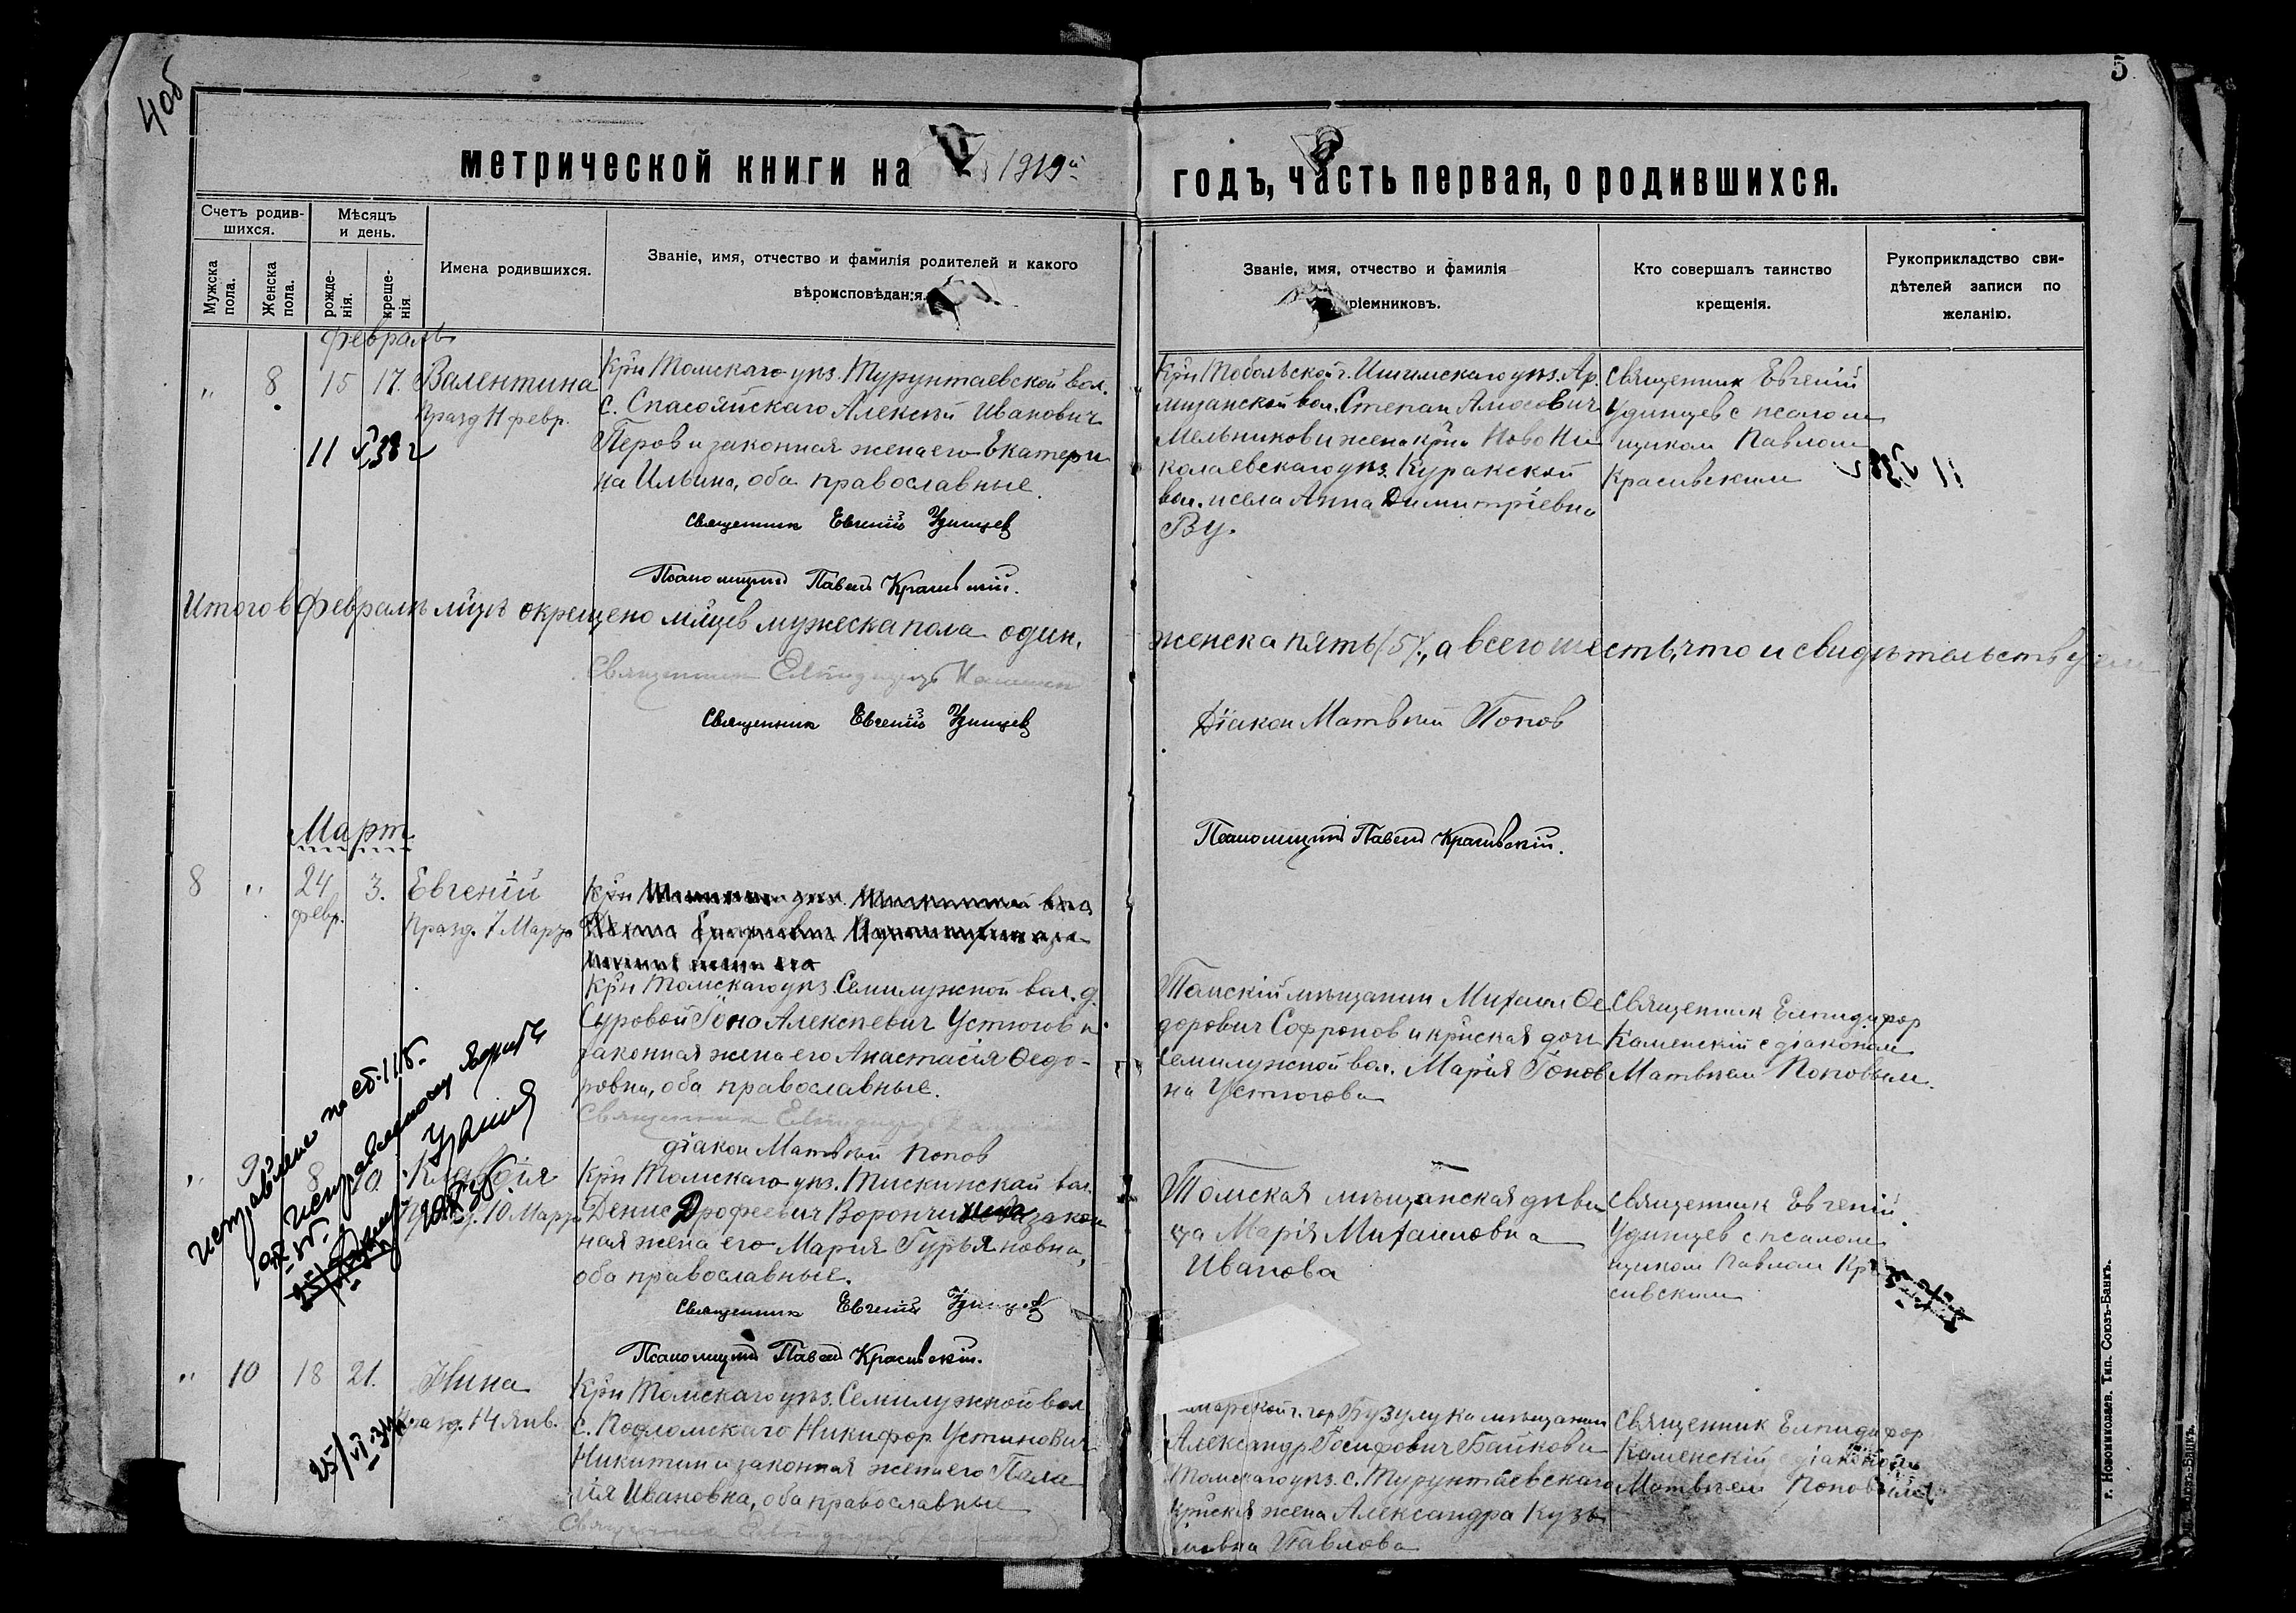 4об
5
метрической книги на 1919й
годъ, часть первая, о родившихся.
Счетъ родив-
шихся.
Мѣсяцъ
и день.
Мужска
пола.
Женска
пола.
рожде-
нія.
креще-
нія.
Имена родившихся.
Званіе, имя, отчество и фамилія родителей и какого
вѣроисповѣданія.
Званіе, имя, отчество и фамилія
ріемниковъ.
Кто совершалъ таинство
крещенія.
Рукоприкладство сви-
дѣтелей записи по
желанію.
Февраль
„ 8 15 17. Валентина
Празд 11 февр.
Кр̃н Томскаго уѣз. Турунтаевской вол.
с. Спасояйскаго Алексѣй Иванович
Перов и законная жена его Екатери
на Ильина, оба православные.
Священник Евгеній Удинцев
Псаломщик Павел Красивскій.
Кр̃н Тобольской г. Ишимскаго уѣз. Ар.
мизанской вол. Степан Амосович
Мельников и жена кр̃на Ново Ни
колаевскаго уѣз.
вол. и села Анна Димитріевна
Священник Евгеній
Удинцев с псалом
щиком Павлом
Красивским
Итого в феврале мцѣ окрещено млцев мужеска пола один,
женска пять (5), а всего шесть, что и свидѣтельствуем
Священник Елпидифор Каменскій
Священник Евгеній Удинцев
Діакон Матвѣй Попов
Псаломщик Павел Красивскій.
Март
8 „ 24 3. Евгеній
февр. Празд. 7 Марта
Кр̃н
Кр̃н Томскаго уѣз. Семилужной вол. д.
Суровой Іона Алексѣевич Устюгов и
законная жена его Анастасія Ѳедо-
ровна, оба православные.
Священник Елпидифор Каменскій
діакон Матвѣй Попов
Томскій мѣщанин Михаил Ѳе
дорович Софронов и кр̃нская дочь
Семилужной вол. Марія Іонов
на Устюгова
Священник Елпидифор
Каменскій с діаконом
Матвѣем Поповым.
„ 9 8 10. Клавдія
Празд. 10 Марта
Кр̃н Томскаго уѣз. Тискинской вол.
Денис Дрофеевич закон
ная жена его Мария Гурьяновна,
оба православные.
Священник Евгеній Удинцев
Псаломщик Павел Красивскій.
Томская мѣщанская дѣви
ца Марія Михаиловна
Иванова
Священник Евгеній
Удинцев с псалом
щиком Павлом Кра
сивским
„ 10 18 21. Нина
Празд. 14 Янв.
Кр̃н Томскаго уѣз. Семилужной вол
с. Подломскаго Никифор Устинович
Никитин и законная жена его Пела
гія Ивановна, оба православные
Священник Елпидифор Каменскій
марской г. гор Бузулука мѣщанин
Александр Іосифович Байков и
Томскаго уѣз. с. Турунтаевскаго
кр̃нская жена Александра Кузь
мовна Павлова
Священник Елпидифор
Каменскій с діаконом
Матвѣем Поповым
г. Новониколаев. Тип. Союзъ-Банкъ.